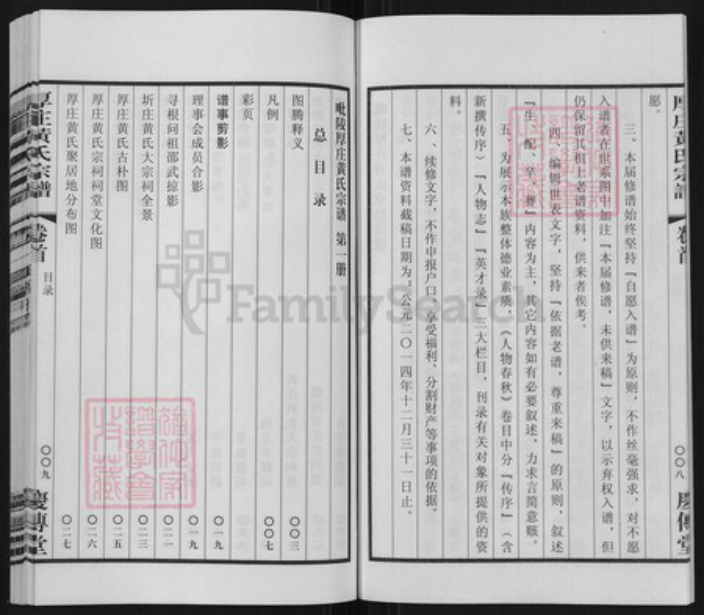 厚庄黄氏宗谱
卷首
〇〇八
慶傳堂
愿。
三、本届修谱始终坚持『自愿入谱』为原则，不作丝毫强求，对不愿
入谱者在世系图中加注『本届修谱，未供来稿』文字，以示弃权入谱，但
仍保留其祖上老谱资料，供来者俟考。
四、编辑世表文字，坚持『依据老谱，尊重来稿』的原则，叙述
『生、配、卒、葬』内容为主，其它内容如有必要叙述，力求言简意赅。
五、为展示本族整体德业素质，（人物春秋）卷目中分『传序』（含
新撰传序）『人物志』『英才录』三大栏目，刊录有关对象所提供的资
料。
六、续修文字，不作申报户口、享受福利、分割财产等事项的依据。
七、本谱资料截稿日期为：公元二〇一四年十二月三十一日止。
毗陵厚庄黄氏宗谱 第一册
总目录
图腾释义 〇〇三
凡例 〇〇七
彩页
谱事剪影 〇一九
理事会成员合影 〇一九
寻根问祖邵武掠影 〇二一
圻庄黄氏大宗祠全景 〇二三
厚庄黄氏古朴图 〇二五
厚庄黄氏宗祠祠堂文化图 〇二六
厚庄黄氏聚居地分布图 〇二七
厚庄黄氏宗谱
卷首
目录
〇〇九
慶傳堂
FamilySearch